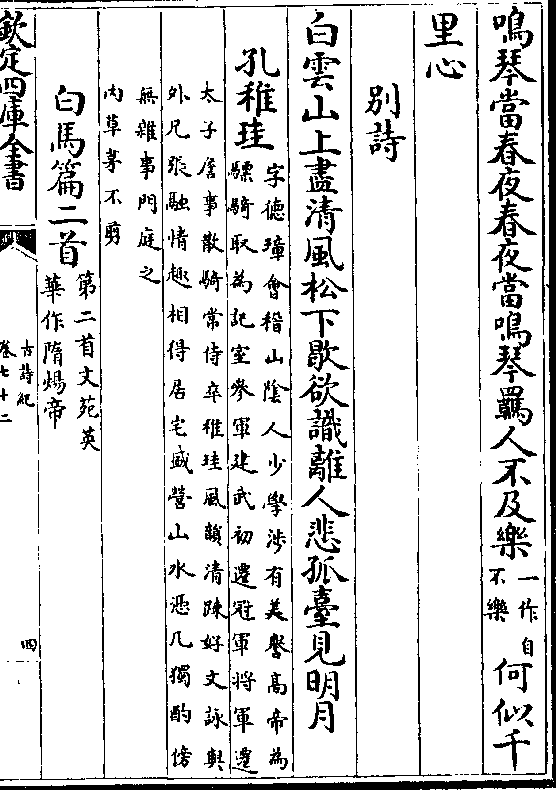 鳴琴當春夜春夜當鳴琴羈人不及樂一作自不樂何似千
里心
別詩
白雲山上盡清風松下歇欲識離人悲孤臺見明月
孔稚珪字德璋會稽山陰人少學涉有美譽髙帝為
驃騎取為記室參軍建武初遷冠軍將軍遷
太子詹事散騎常侍卒稚珪風韻清踈好文詠與
外兄張融情趣相得居宅盛營山水憑几獨酌傍
無雜事門庭之
内草茅不剪
白馬篇二首第二首文苑英
華作隋煬帝
欽定四庫全書
古詩紀
卷七十二
四